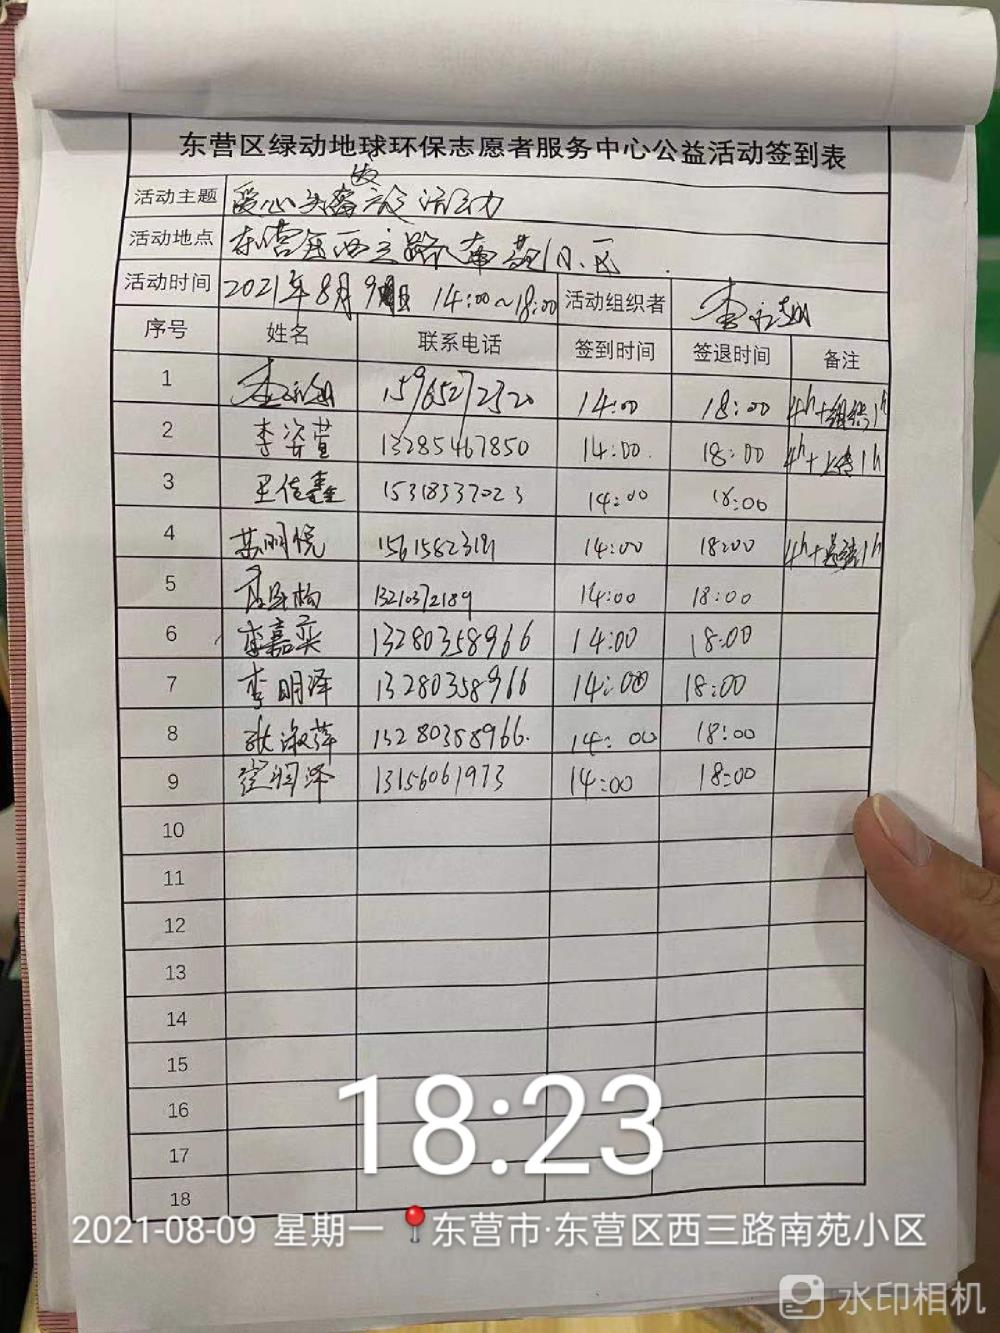 东营区绿动地球环保志愿者服务中心公益活动签到表
活动主题 爱心头 活动
活动地点 东营区西三路南苑小区
活动时间 2021年8月9日 14:00~18:00 活动组织者 李
序号 姓名 联系电话 签到时间 签退时间 备注
1 李 15965272520 14:00 18:00 4h+组织1h
2 李姿萱 13285467850 14:00 18:00 4h+上传1h
3 王佳鑫 15318337023 14:00 18:00
4 苏明悦 14:00 18:00 4h+总结1h
5 13210372189 14:00 18:00
6 李嘉奕 13280358966 14:00 18:00
7 李明泽 13280358966 14:00 18:00
8 张淑萍 13280358966 14:00 18:00
9 13156061973 14:00 18:00
10
11
12
13
14
15
16
17
18
18:23
2021-08-09 星期一 东营市·东营区西三路南苑小区
水印相机